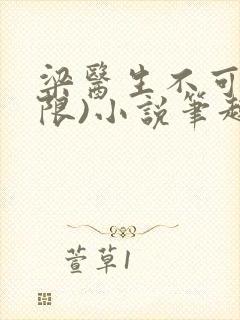 梁醫生不可
限)小說筆趣
萱草1